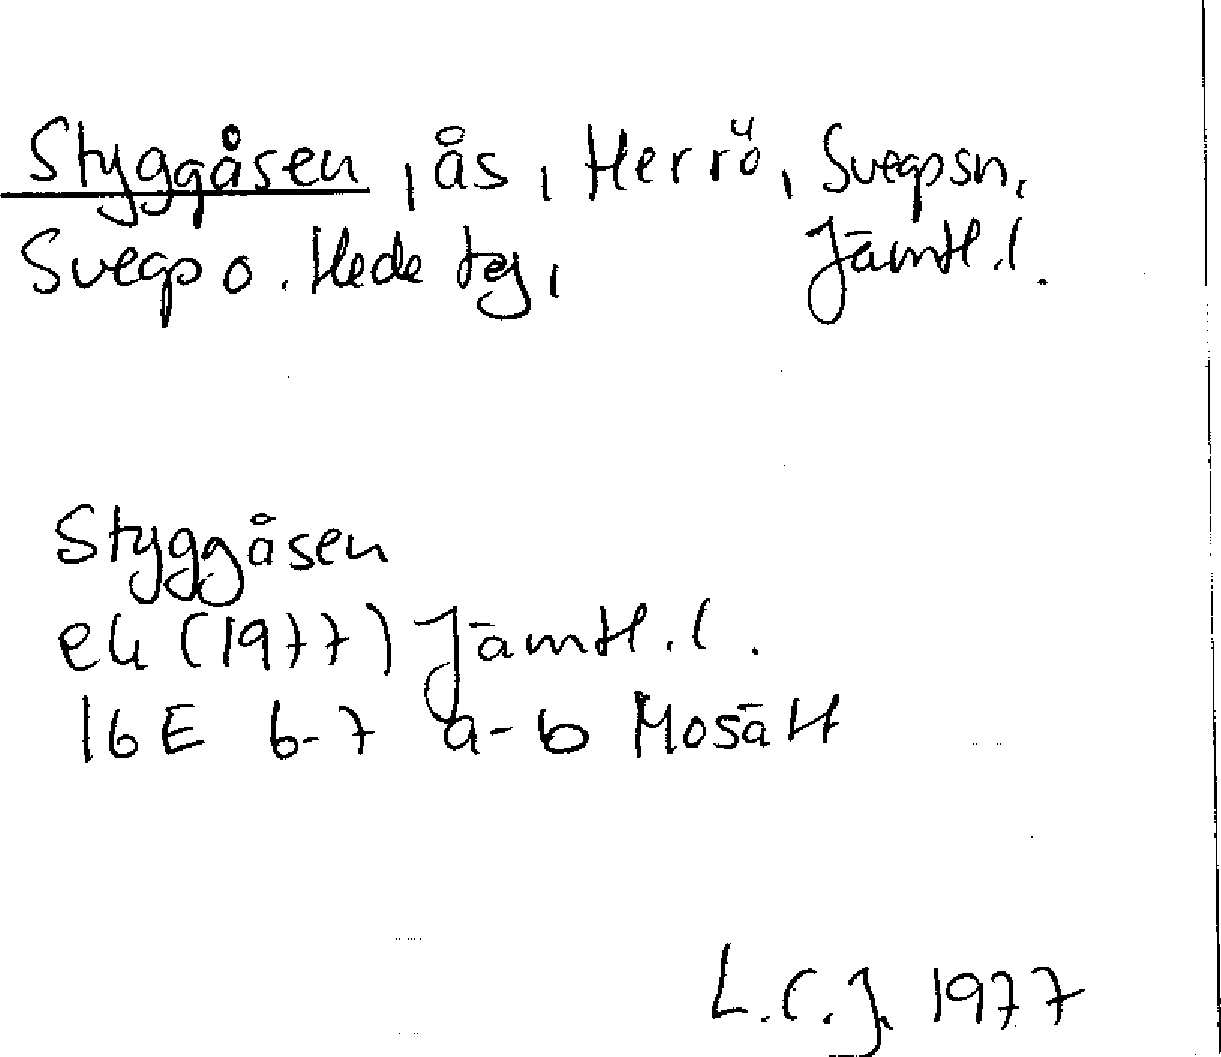 Styggåsen, ås, Herrö, Svegs sn,
Svegs o. Hede tg, Jämtl. l.
Styggåsen
ek (1977) Jämtl. l.
16E 6-7 a-b Mosätt
L.C.J. 1977